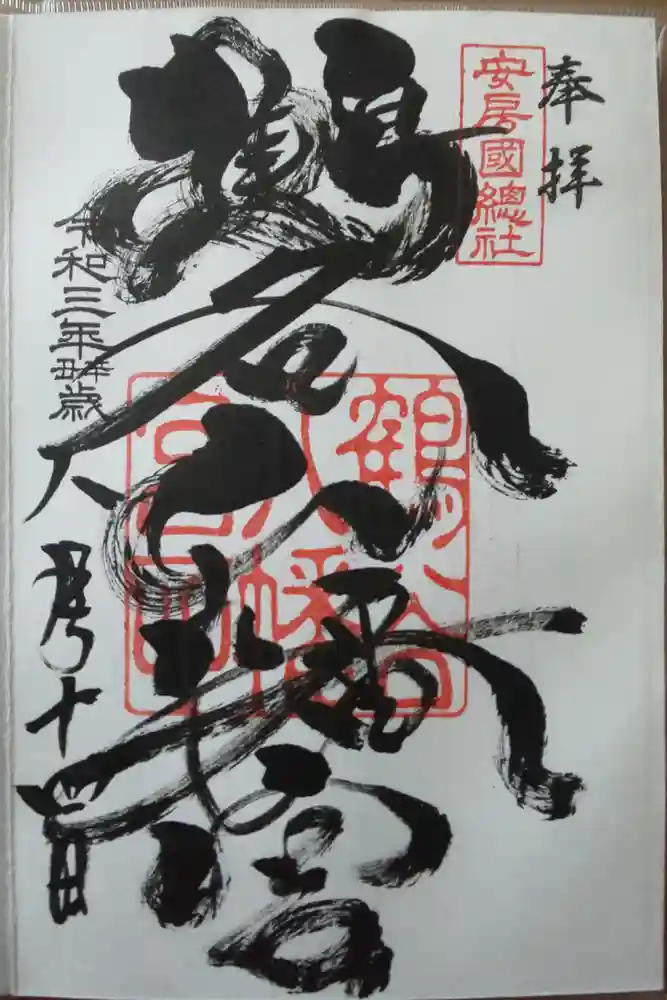 奉拝
安房國總社
鶴谷八幡宮
令和三年辛丑歳
八月十四日
鶴谷八幡宮